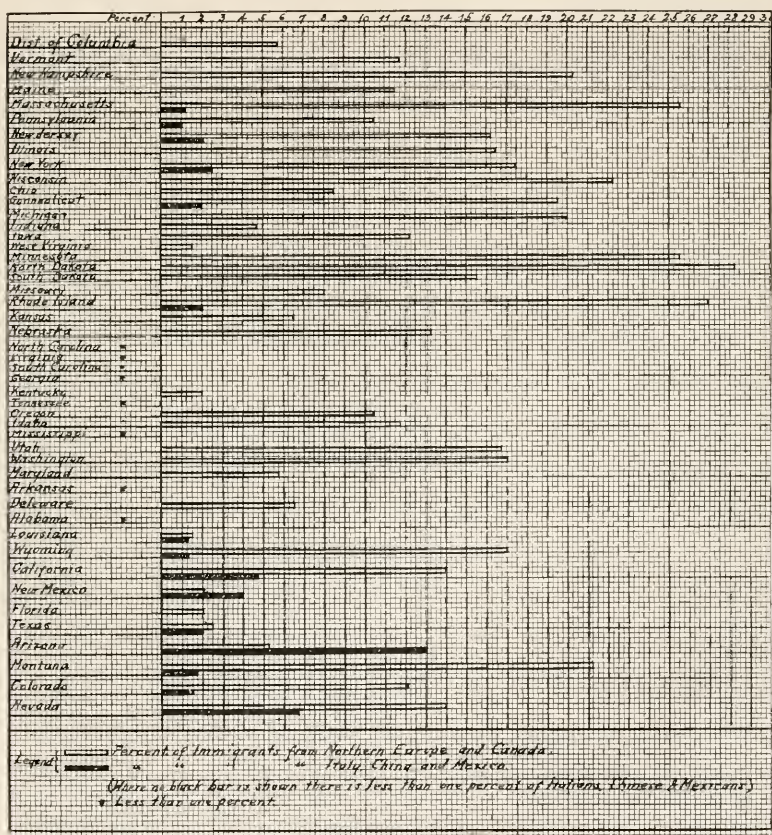 Percent 1 2 3 4 5 6 7 8 9 10 11 12 13 14 15 16 17 18 19 20 21 22 23 24 25 26 27 28 29 30
Dist of Columbia
Vermont
New Hampshire
Maine
Massachusetts
Pennsylvania
New Jersey
Illinois
New York
Wisconsin
Ohio
Connecticut
Michigan
Indiana
Iowa
West Virginia
Minnesota
North Dakota
South Dakota
Missouri
Rhode Island
Kansas
Nebraska
North Carolina *
Virginia *
South Carolina *
Georgia *
Kentucky
Tennessee *
Oregon
Idaho
Mississippi *
Utah
Washington
Maryland
Arkansas *
Deleware
Alabama *
Louisiana
Wyoming
California
New Mexico
Florida
Texas
Arizona
Montana
Colorado
Nevada
Legend { Percent of Immigrants from Northern Europe and Canada.
" " " " Italy, China and Mexico.
(Where no black bar is shown there is less than one percent of Italians, Chinese & Mexicans)
* Less than one percent.